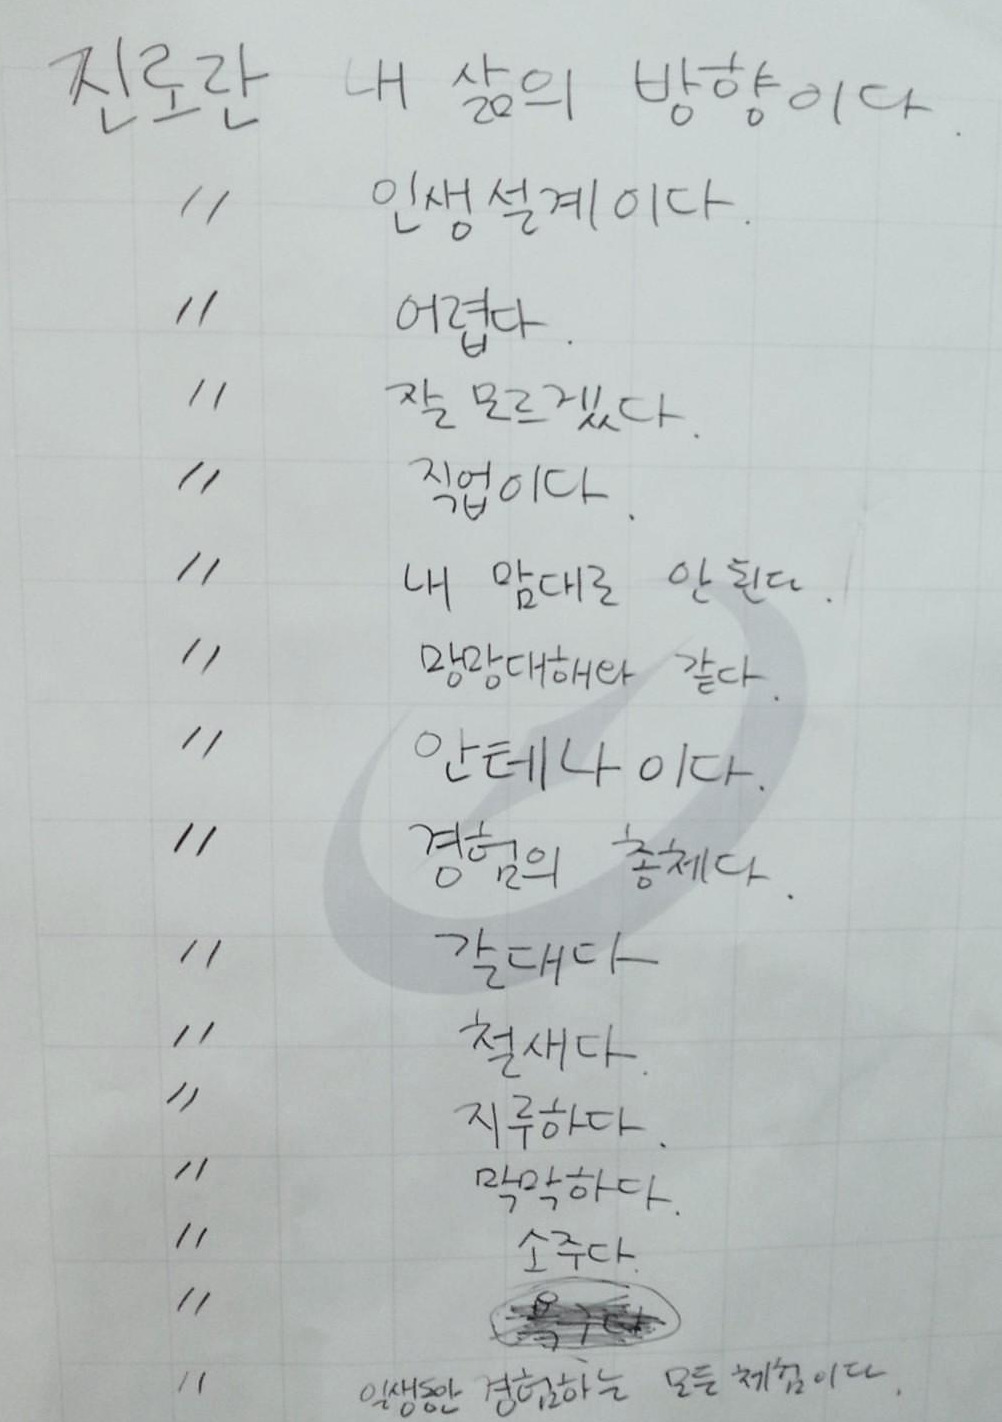 진로란 내 삶의 방향이다.
〃 인생설계이다.
〃 어렵다.
〃 잘 모르겠다.
〃 직업이다.
〃 내 맘대로 안 된다.
〃 망망대해와 같다.
〃 안테나이다.
〃 경험의 총체다.
〃 갈대다
〃 철새다.
〃 지루하다.
〃 막막하다.
〃 소주다.
〃
〃 일생동안 경험하는 모든 체험이다.